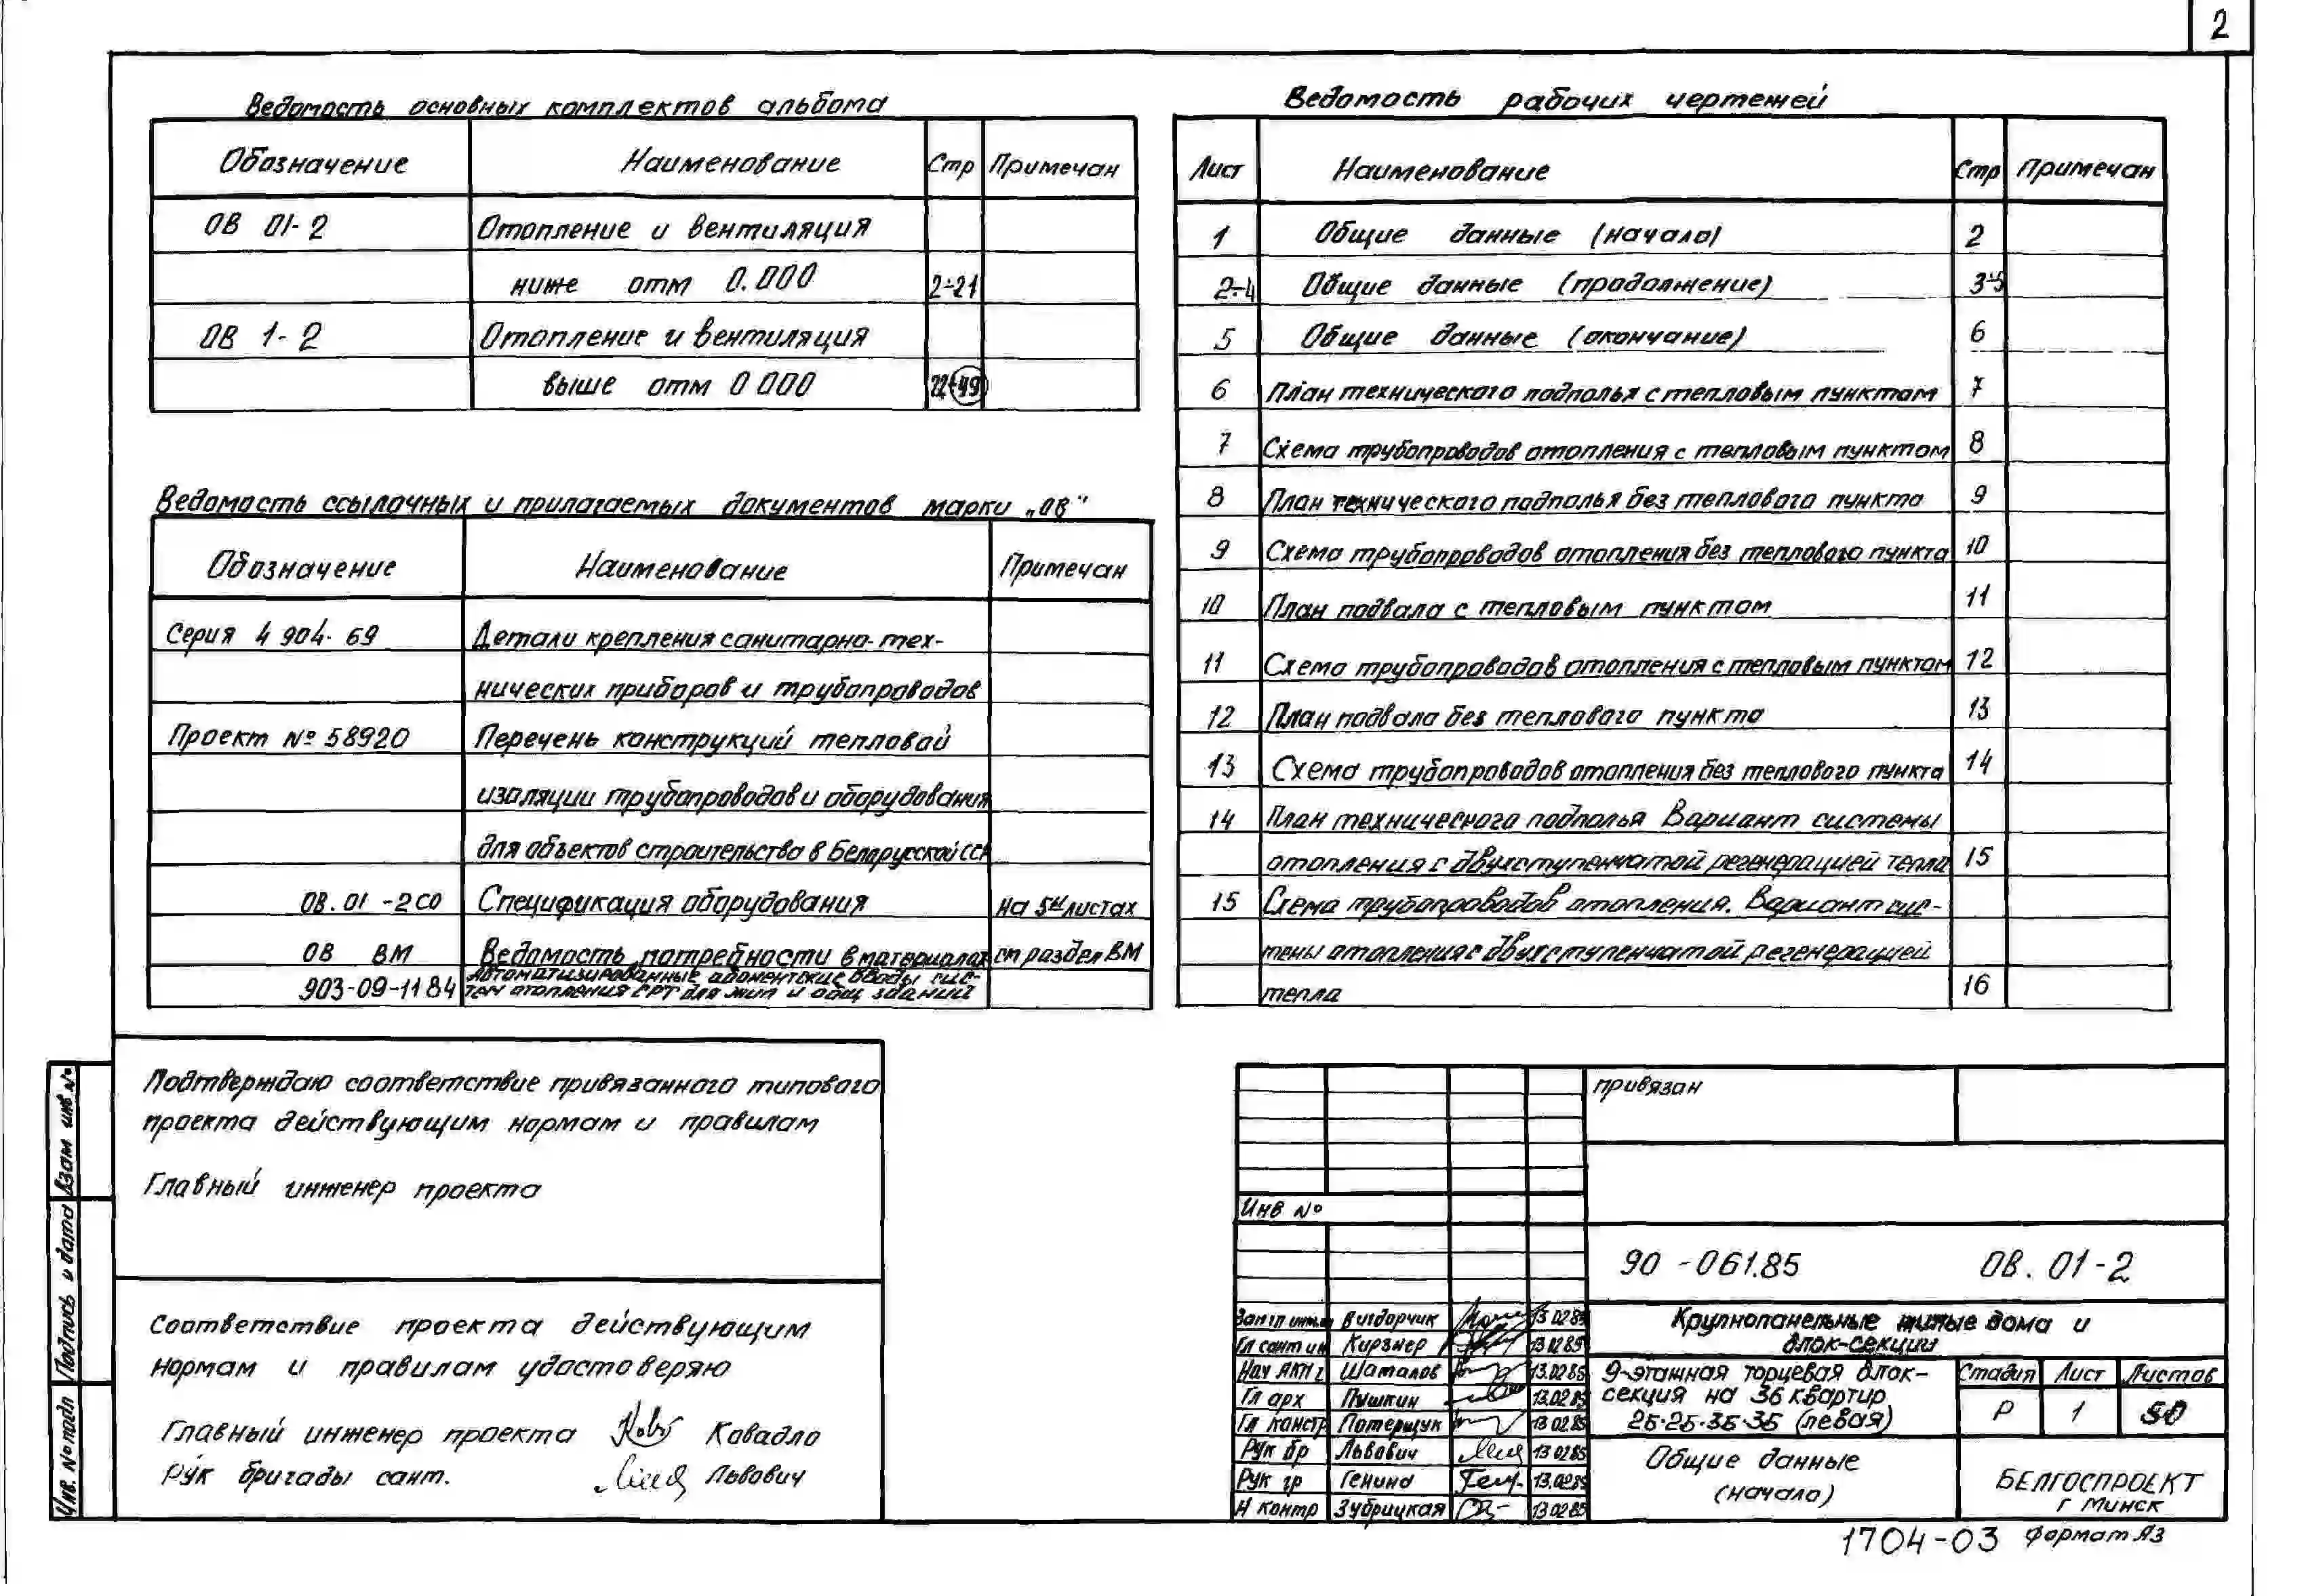 2
Ведомость основных комплектов альбома
Обозначение Наименование Стр Примечан
ОВ 01-2 Отопление и вентиляция
ниже отм 0.000 2÷21
ОВ 1-2 Отопление и вентиляция
выше отм 0 000 22÷49
Ведомость ссылочных и прилагаемых документов марки „ОВ"
Обозначение Наименование Примечан
Серия 4 904-69 Детали крепления санитарно-тех-
нических приборов и трубопроводов
Проект № 58920 Перечень конструкций тепловой
изоляции трубопроводов и оборудования
для объектов строительства в Белорусской ССР
ОВ.01-2СО Спецификация оборудования на 5и листах
ОВ ВМ Ведомость потребности в материалах см раздел ВМ
903-09-11 84 Автоматизированные абонентские вводы сис-
тем отопления СРТ для жил и общ зданий
Ведомость рабочих чертежей
Лист Наименование Стр Примечан
1 Общие данные (начало) 2
2÷4 Общие данные (продолжение) 3÷5
5 Общие данные (окончание) 6
6 План технического подполья с тепловым пунктом 7
7 Схема трубопроводов отопления с тепловым пунктом 8
8 План технического подполья без теплового пункта 9
9 Схема трубопроводов отопления без теплового пункта 10
10 План подвала с тепловым пунктом 11
11 Схема трубопроводов отопления с тепловым пунктом 12
12 План подвала без теплового пункта 13
13 Схема трубопроводов отопления без теплового пункта 14
14 План технического подполья Вариант системы
отопления с двухступенчатой регенерацией тепла 15
15 Схема трубопроводов отопления. Вариант сис-
темы отопления с двухступенчатой регенерацией
тепла 16
Подтверждаю соответствие привязанного типового
проекта действующим нормам и правилам
Главный инженер проекта
Соответствие проекта действующим
нормам и правилам удостоверяю
Главный инженер проекта Ковадло
Рук бригады сант. Львович
Взам инв №
Подпись и дата
Инв. № подл
привязан
Инв №
90-061.85 ОВ. 01-2
Зам гл инж Вигдорчик 13 02 85
Гл сант ин Кирзнер 13 02 85
Нач АКП 2 Шаталов 13.02 85
Гл арх Пушкин 13.02 85
Гл констр Потерщук 13 02.85
Рук бр Львович 13 02 85
Рук гр Генина 13.02 85
Н контр Зубрицкая 13 02 85
Крупнопанельные жилые дома и
блок-секции
9-этажная торцевая блок-
секция на 36 квартир
2Б·2Б·3Б·3Б (левая)
Стадия Лист Листов
Р 1 50
Общие данные
(начало)
БЕЛГОСПРОЕКТ
г Минск
1704-03 Формат А3